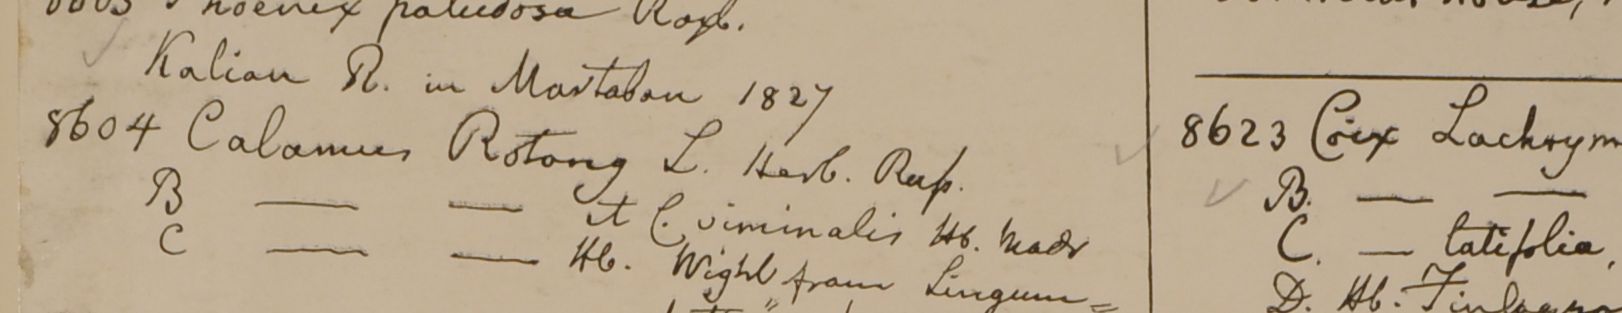 8603 Phoenix paludosa Roxb.
Kalian R. in Martaban 1827
8604 Calamus Rotang L. Herb. Russ.
B — — et C. viminalis Hb. Madr
C — — Hb. Wight from Lingum=
8623 Coix Lachrym
B. — —
C. — latifolia,
D. Hb. Finlayson